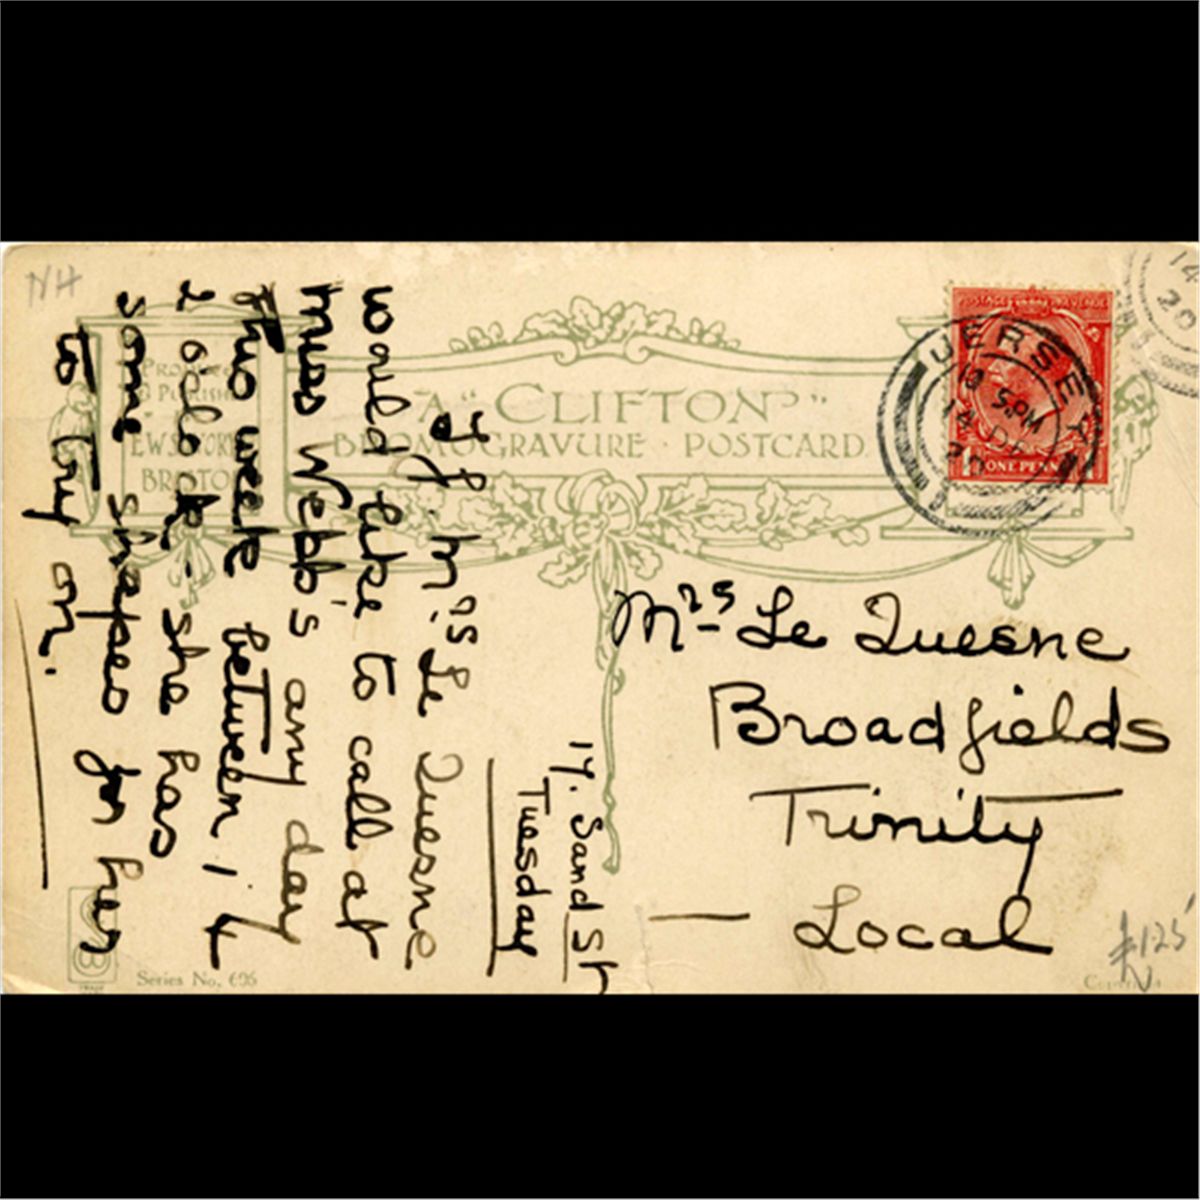 NH
PRODUCED
& PUBLISHED
BRISTOL
A "CLIFTON"
BROMOGRAVURE · POSTCARD
JERSEY
5 PM
14 DE
20
POSTAGE REVENUE
ONE PENNY
14
20
17. Sand St
Tuesday
If Mrs Le Quesne
would like to call at
Miss Webb's any day
this week between 1 &
2 o'clock - she has
some shapes for her
to try on.
Mrs Le Quesne
Broadfields
Trinity
Local
£1.25
Series No. 696